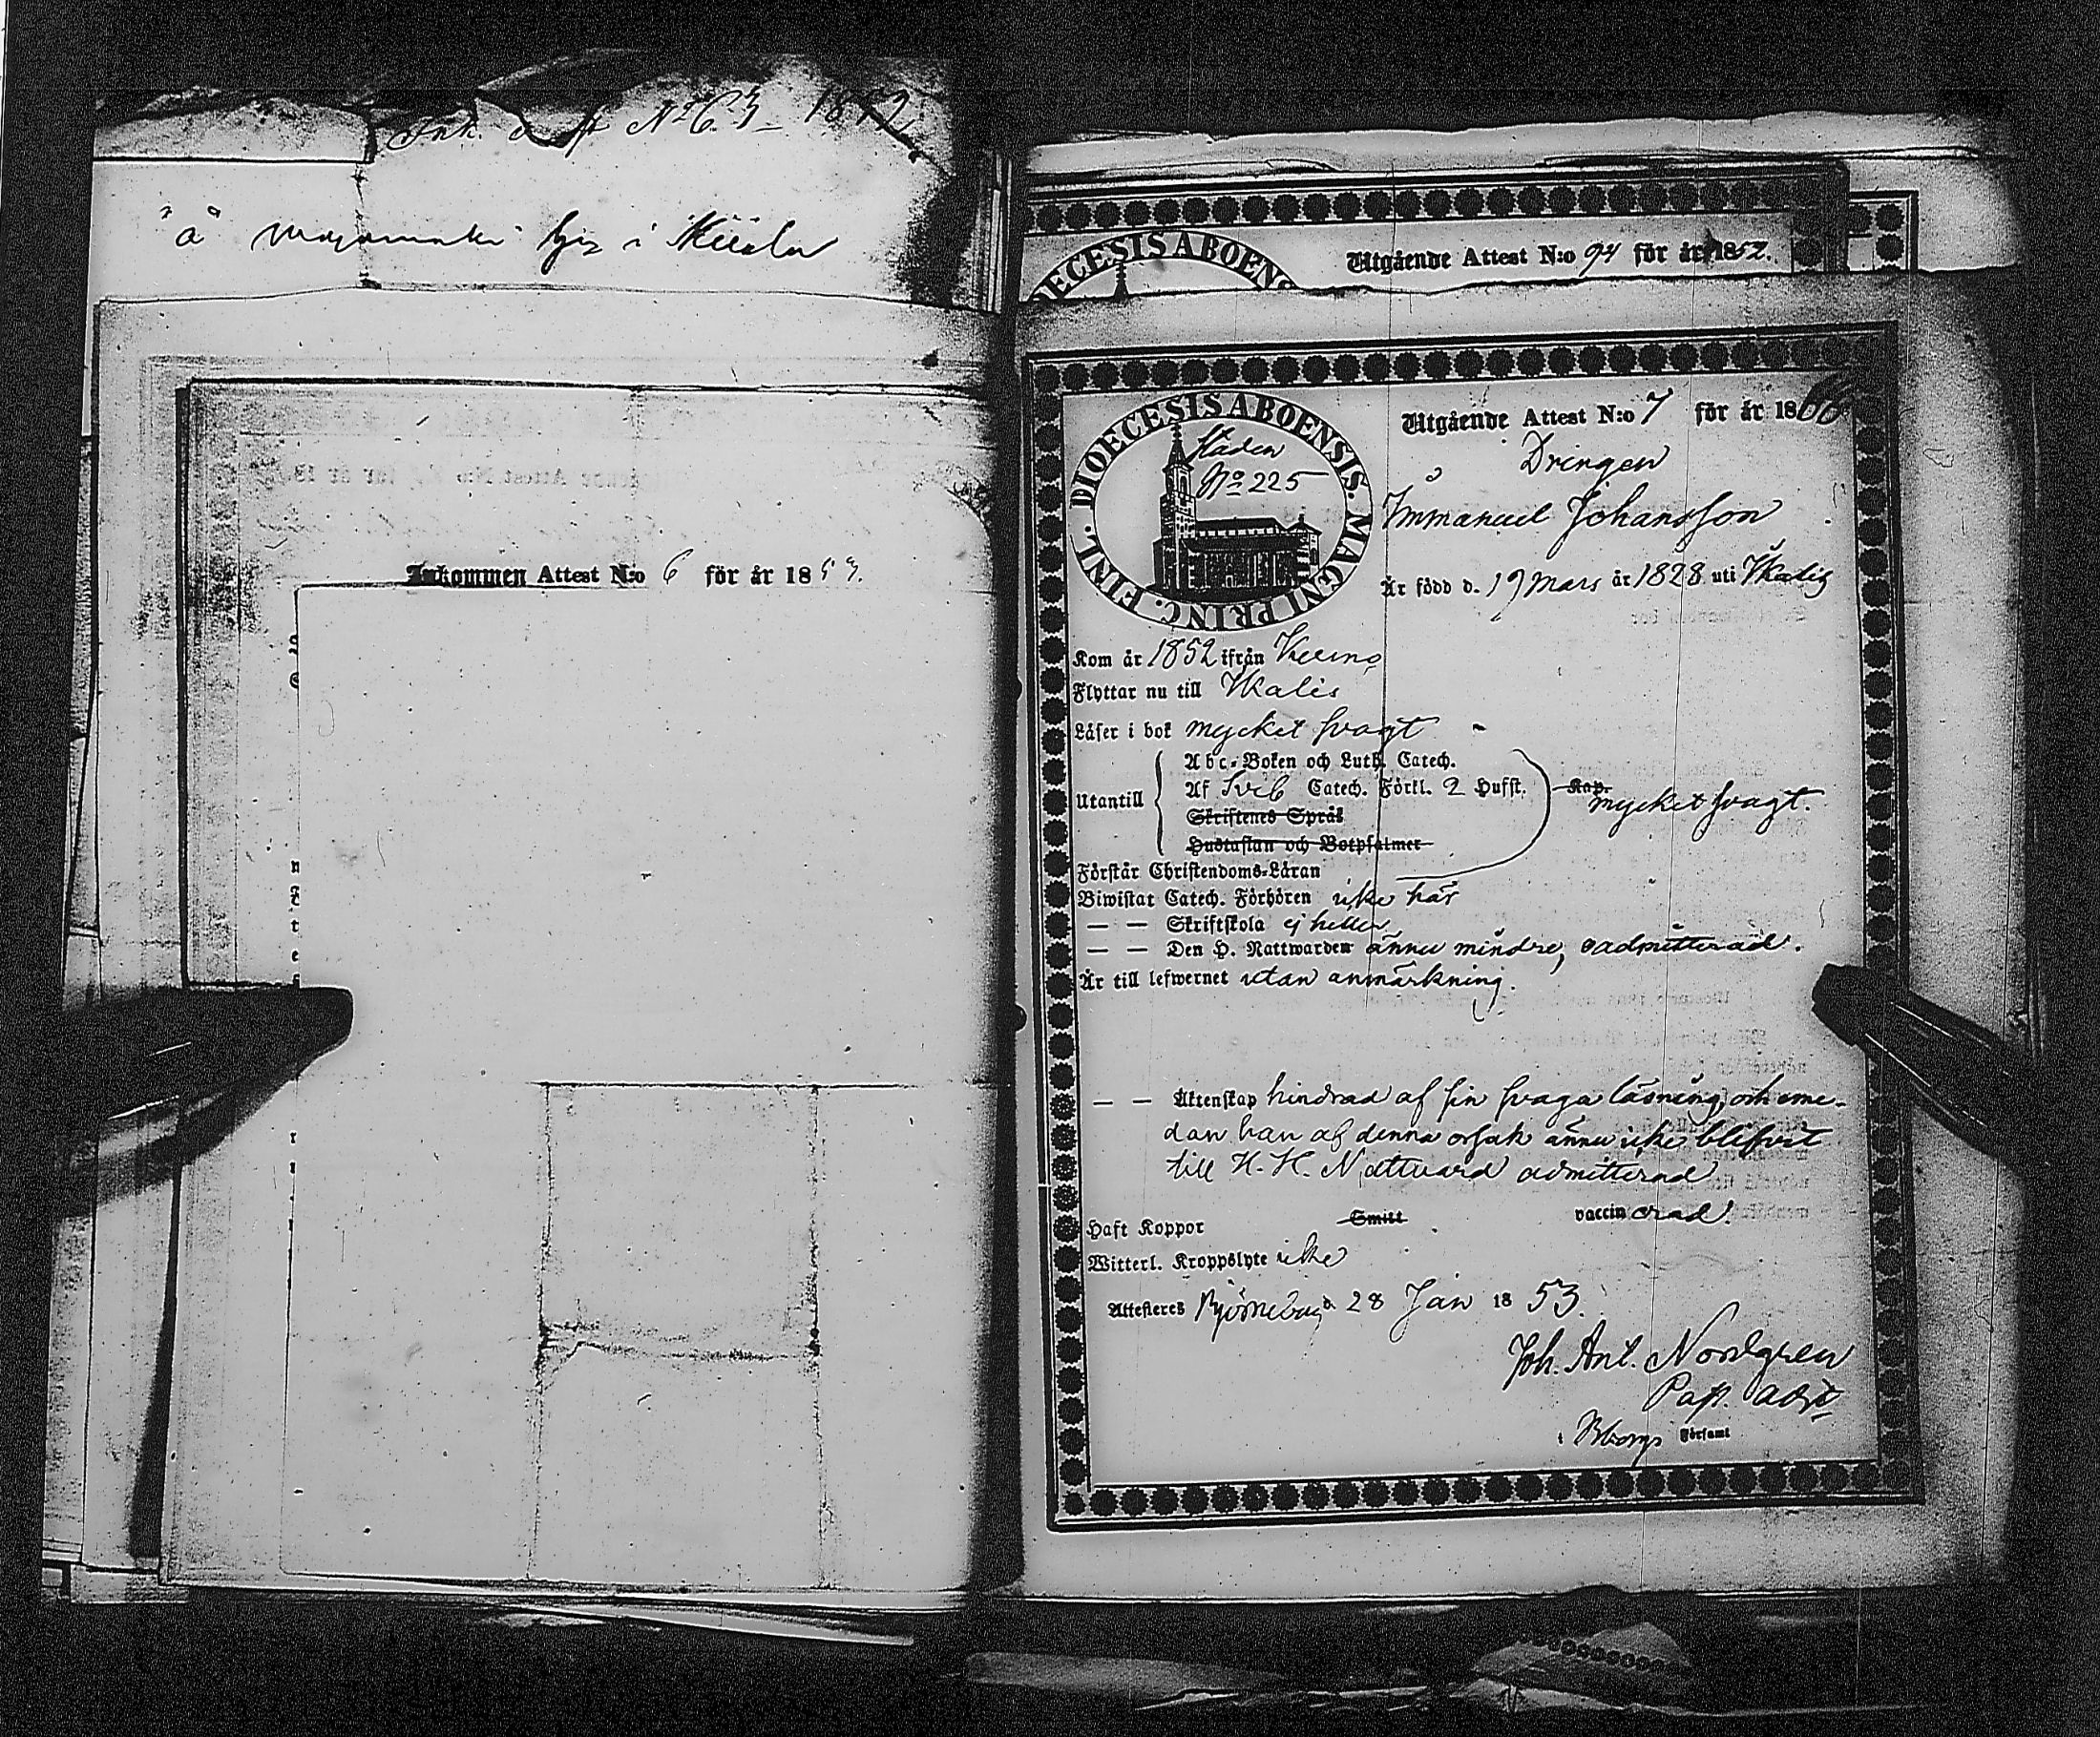 Ink. N:o 63 1852
å i
Inkommen Attest N:o 6 för år 1853.
DIOECESIS ABOENS
Utgående Attest N:o 94 för år 1852.
DIOECESIS ABOENSIS. MAGNI PRINC. FINL.
Staden
No 225
Utgående Attest N:o 7 för år 18
Drängen
Immanuel Johansson
Är född d. 19 Mars år 1828 uti Ikalis
Kom år 1852 ifrån
Flyttar nu till Ikalis
Läser i bok mycket svagt
Utantill
Abc-Boken och Luth. Catech.
Af Sveb Catech. Förkl. 2 Hufst.
Skriftenes Språk
Hustaflan och Botpsalmer
Kap.
mycket svagt.
Förstår Christendoms-Läran
Biwistat Catech. Förhören icke här
— — Skriftskola ej heller
— — Den H. Nattwarden ännu mindre, oadmitterad.
Är till lefwernet utan anmärkning.
— — Äktenskap hindrad af sin svaga läsning, och eme-
dan han af denna orsak ännu icke blifvit
till H. H. Nattvard admitterad
Haft Koppor Smitt vaccinerad.
Witterl. Kroppslyte icke
Attesteres Björneborg d. 28 Jan 1853.
Joh. Ant. Nordgren
Past. adj.
i Bborgs Församl